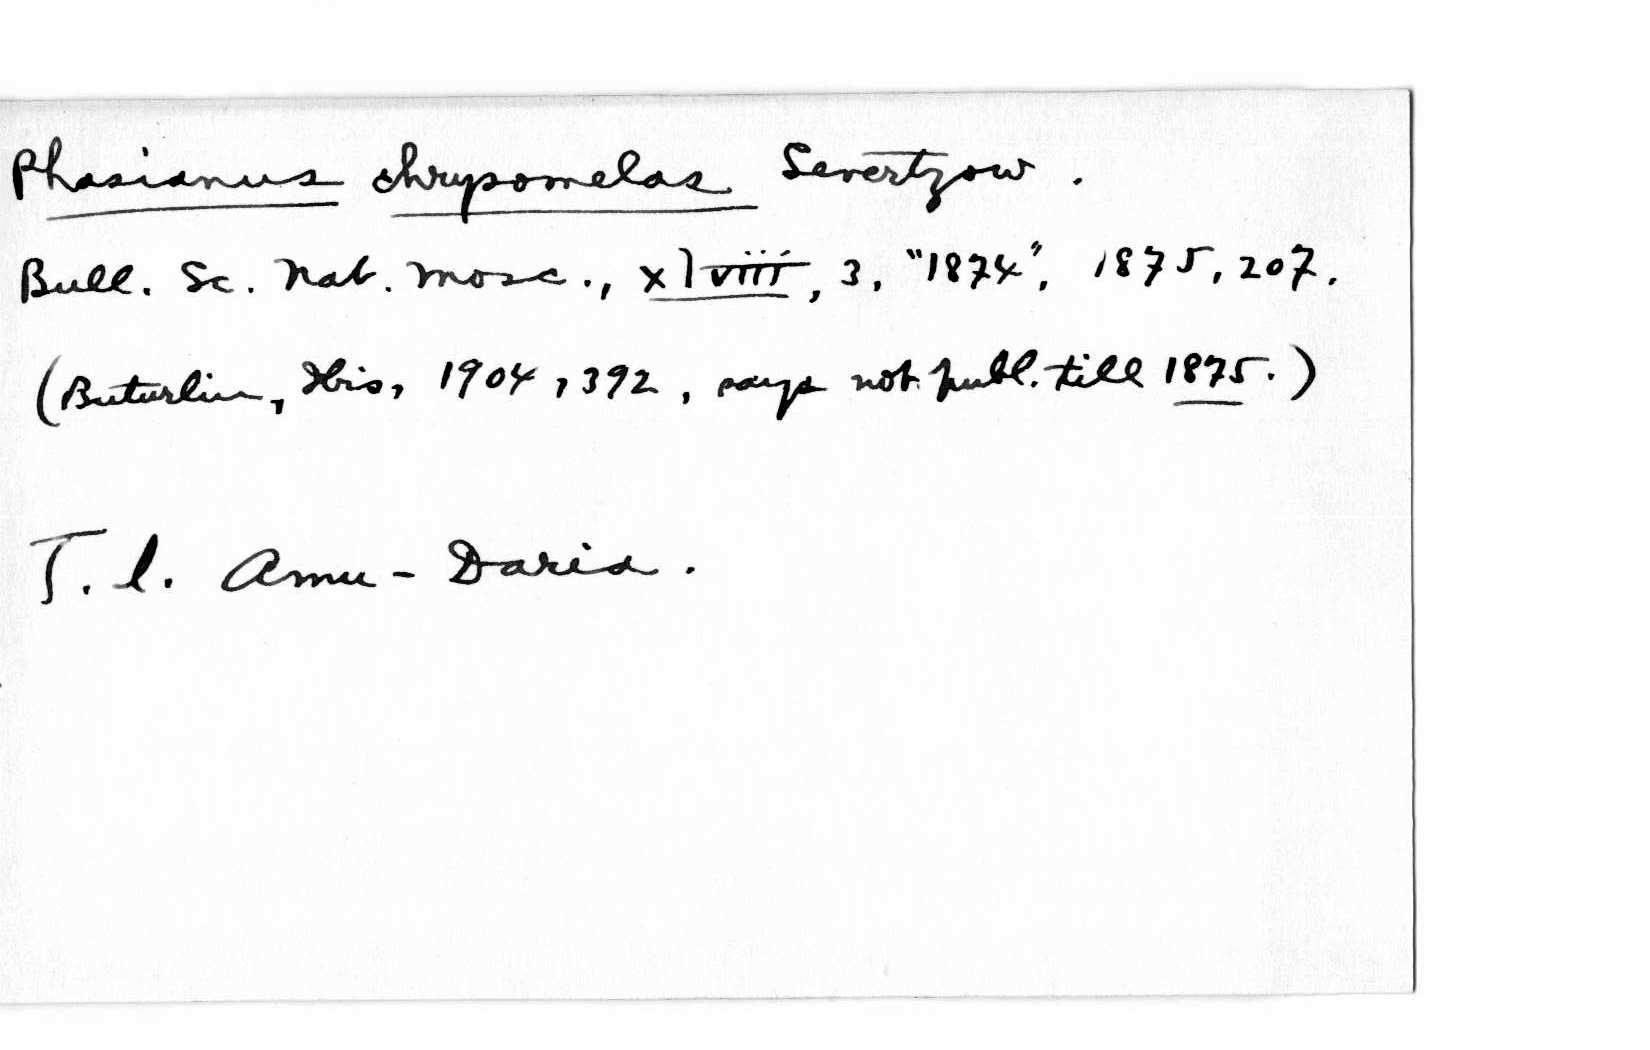 Phasianus chrysomelas Severtzow.
Bull. Sc. Nat. Mosc., xlviii, 3, "1874", 1875, 207.
(Buturlin, Ibis, 1904, 392, says not publ. till 1875.)
T. l. Amu-Daria.